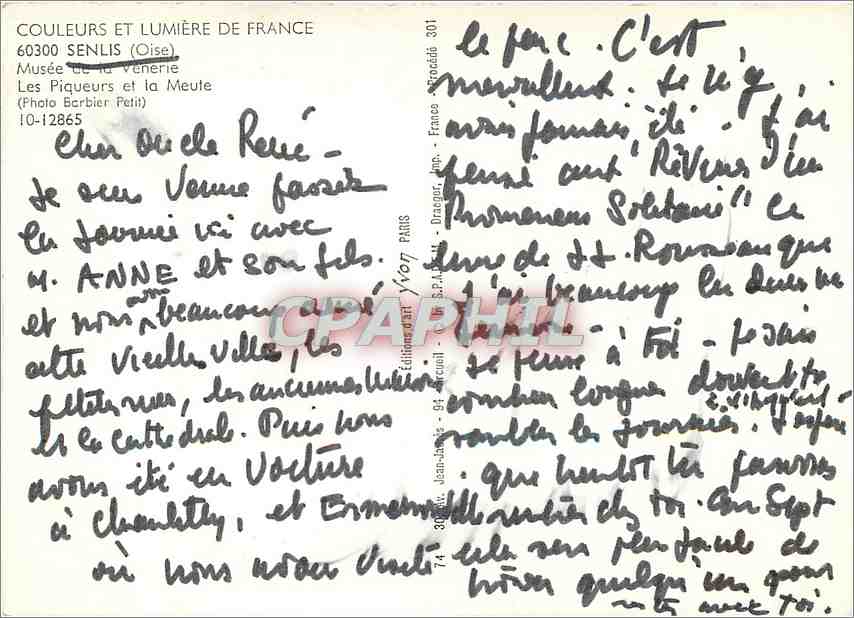 COULEURS ET LUMIÈRE DE FRANCE
60300 SENLIS (Oise)
Musée de la Vénerie
Les Piqueurs et la Meute
(Photo Barbier Petit)
10-12865
Cher Oncle René -
Je suis venue passer
la journée ici avec
M. ANNE et son fils.
et nous avons beaucoup aimé
cette vieille ville, les
petites rues, les anciennes maisons
et la cathédrale. Puis nous
avons été en voiture
à Chantilly, et Ermenonville
où nous avons visité
le parc. C'est
merveilleux. Je n'y
avais jamais été - J'ai
pensé aux "Rêveries d'un
Promeneur Solitaire" ce
livre de J.J. Rousseau que
j'ai beaucoup lu
Je pense à toi - je sais
combien longues doivent te
sembler les journées. à l'hôpital
J'espère
que bientôt tu pourras
rentrer chez toi. en Sept
cela sera plus facile de
trouver quelqu'un pour
rester avec toi.
Éditions d'art Yvon PARIS
74 30, Av. Jean-Jaurès - 94-Arcueil - Draeger, Imp. - France Procédé 301
CPAPHIL